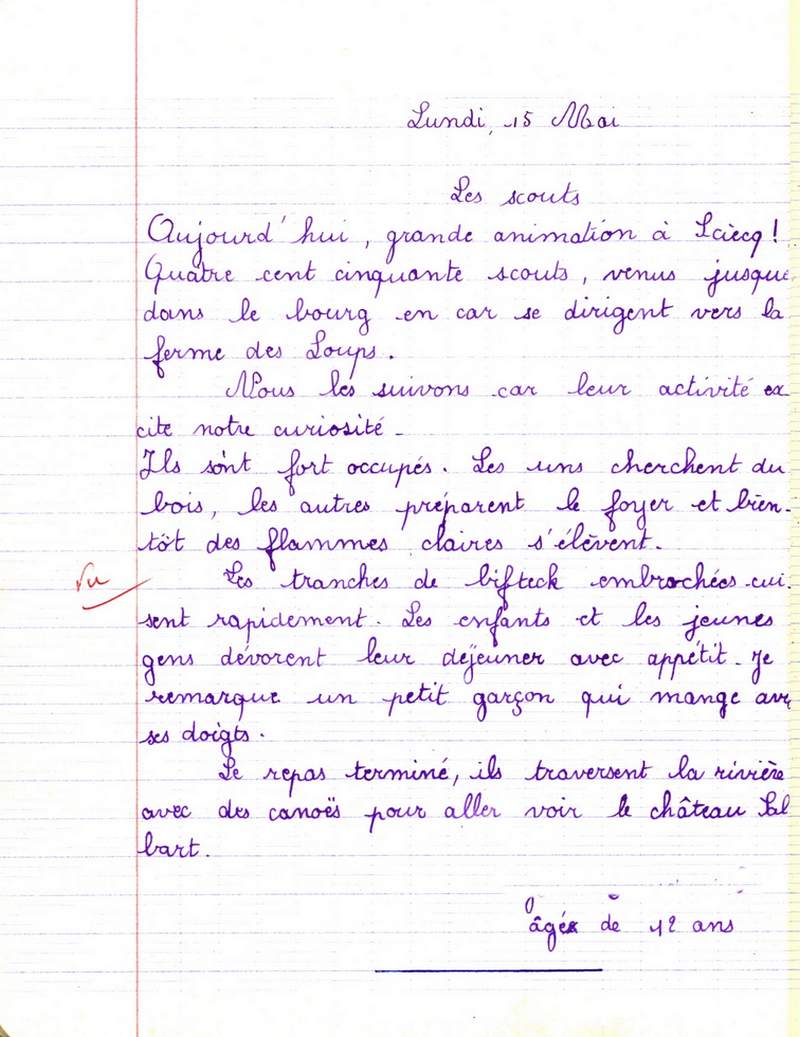 Lundi, 15 Mai
Les scouts
Aujourd'hui, grande animation à Sciecq !
Quatre cent cinquante scouts, venus jusque
dans le bourg en car se dirigent vers la
ferme des Loups.
Nous les suivons car leur activité ex
cite notre curiosité.
Ils sont fort occupés. Les uns cherchent du
bois, les autres préparent le foyer et bien-
tôt des flammes claires s'élèvent.
Vu
Les tranches de bifteck embrochées cui-
sent rapidement. Les enfants et les jeunes
gens dévorent leur déjeuner avec appétit. Je
remarque un petit garçon qui mange avec
ses doigts.
Le repas terminé, ils traversent la rivière
avec des canoës pour aller voir le château Sal
bart.
âgée de 12 ans